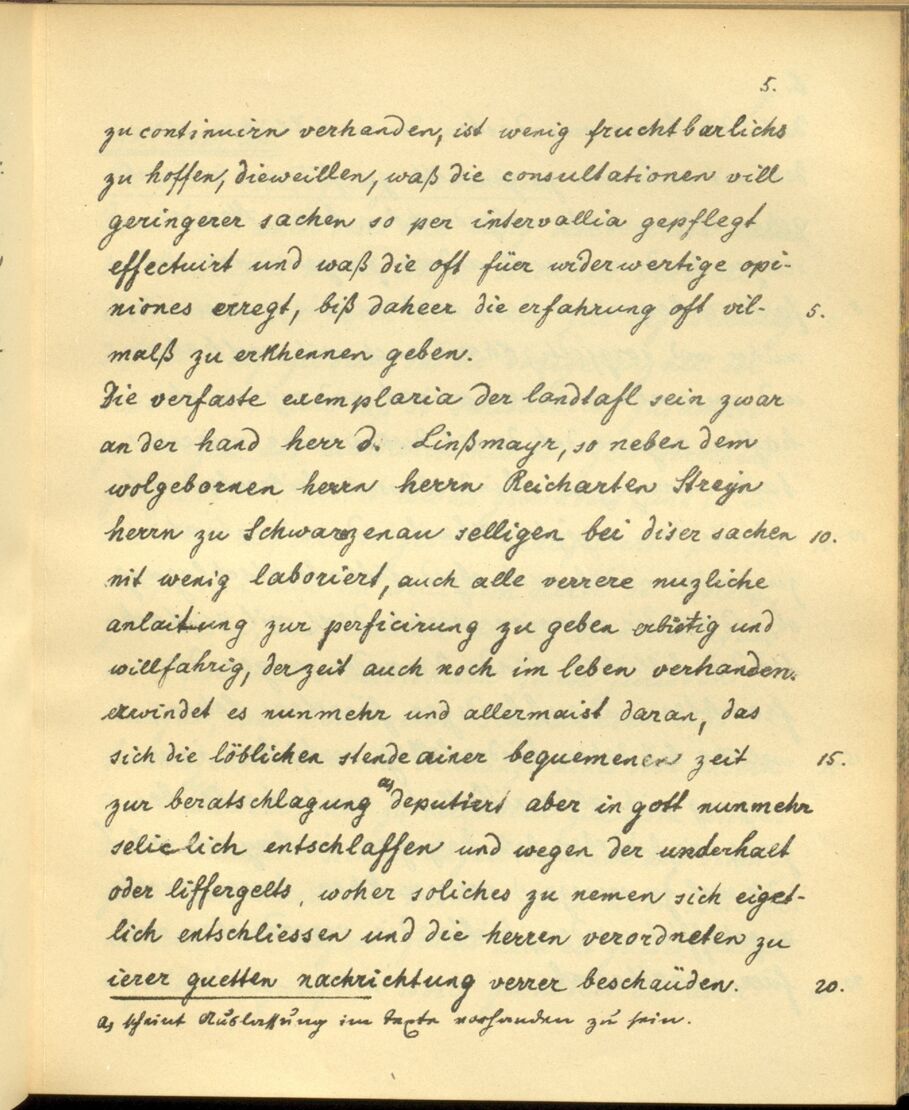 5.
zu continuirn verhanden, ist wenig fruchtbarlichs
zu hoffen, dieweillen, waß die consultationen vill
geringerer sachen so per intervallia gepflegt
effectuirt und waß die oft füer widerwertige opi-
niones erregt, biß daheer die erfahrung oft vil- 5.
malß zu erkhennen geben.
Die verfaste exemplaria der landtafl sein zwar
an der hand herr d. Linßmayr, so neben dem
wolgebornen herrn herrn Reicharten Streyn
herrn zu Schwarzenau selligen bei diser sachen 10.
nit wenig laboriert, auch alle verrere nuzliche
anlaitung zur perficirung zu geben erbietig und
willfahrig, derzeit auch noch im leben verhanden.
erwindet es nunmehr und allermaist daran, das
sich die löblichen stende ainer bequemenen zeit 15.
zur beratschlagung a) deputiert aber in gott nunmehr
seliclich entschlaffen und wegen der underhalt
oder liffergelts, woher soliches zu nemen sich eiget-
lich entschliessen und die herren verordneten zu
ierer guetten nachrichtung verrer beschaüden. 20.
a) scheint Auslassung im Texte vorhanden zu sein.